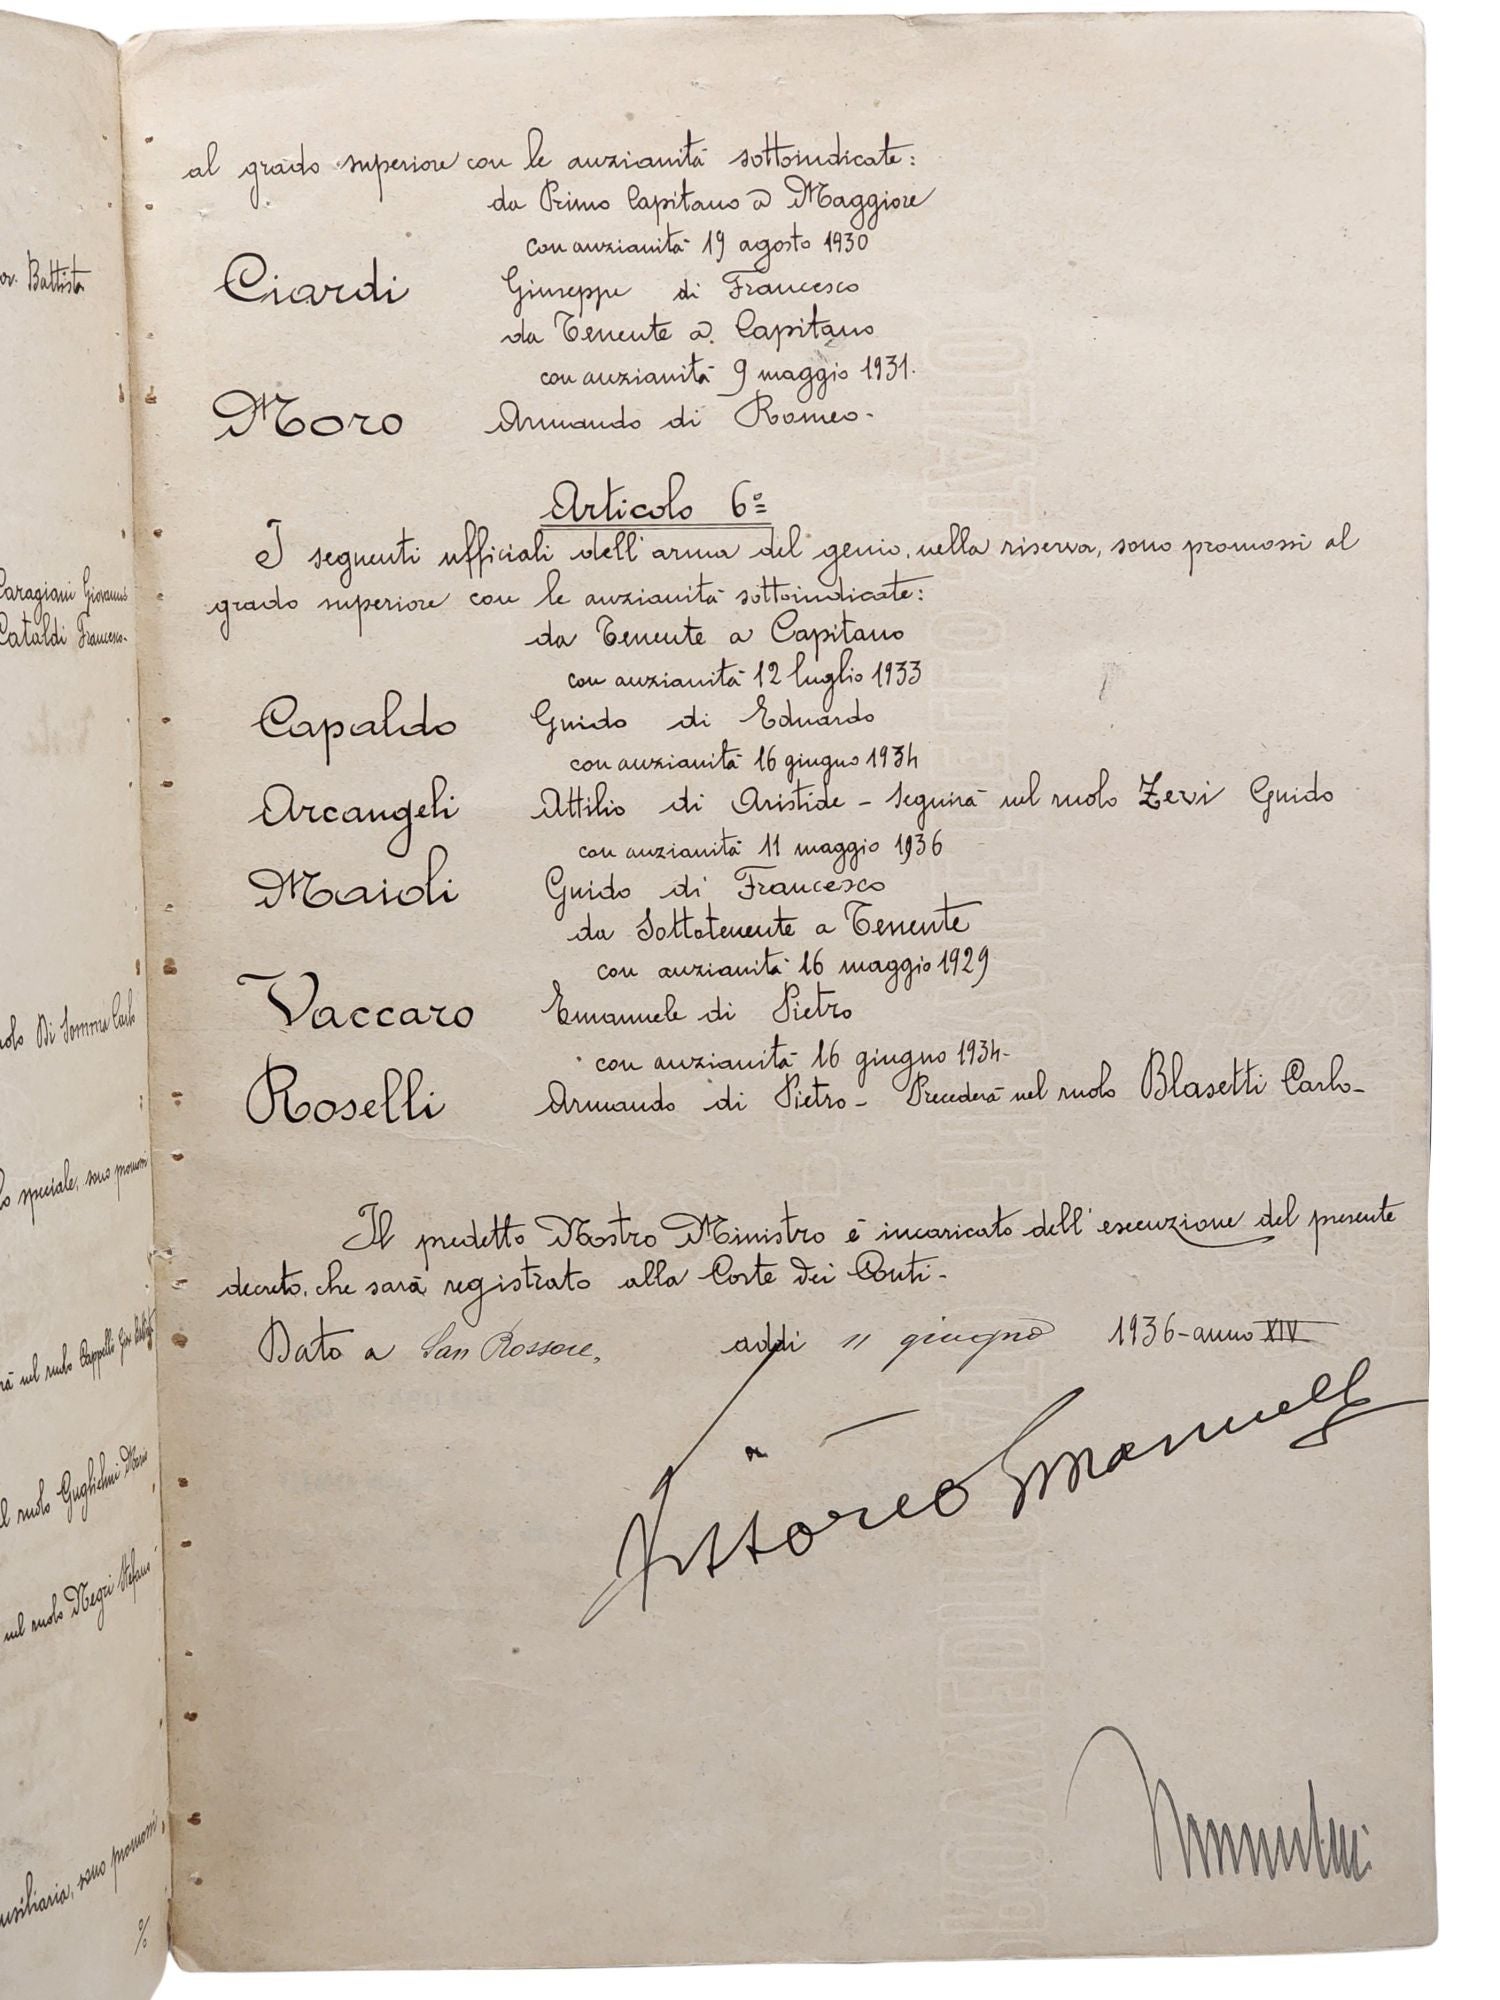 or. Battista
Caragiani Giovanni
Cataldi Francesco-
Di Somma Carlo
speciale, sono promossi
nel ruolo Cappelli Gio Battista
ruolo Guglielmi Mario
nel ruolo Negri Stefano
ausiliaria, sono promossi
%
al grado superiore con le anzianità sottoindicate:
da Primo Capitano a Maggiore
con anzianità 19 agosto 1930
Ciardi Giuseppe di Francesco
da Tenente a Capitano
con anzianità 9 maggio 1931.
Moro Armando di Romeo-
Articolo 6º
I seguenti ufficiali dell'arma del genio, nella riserva, sono promossi al
grado superiore con le anzianità sottoindicate:
da Tenente a Capitano
con anzianità 12 luglio 1933
Capaldo Guido di Eduardo
con anzianità 16 giugno 1934
Arcangeli Attilio di Aristide - Seguirà nel ruolo Zevi Guido
con anzianità 11 maggio 1936
Maioli Guido di Francesco
da Sottotenente a Tenente
con anzianità 16 maggio 1929
Vaccaro Emanuele di Pietro
con anzianità 16 giugno 1934-
Roselli Armando di Pietro- Precederà nel ruolo Blasetti Carlo-
Il predetto Nostro Ministro è incaricato dell'esecuzione del presente
decreto, che sarà registrato alla Corte dei Conti-
Dato a San Rossore, addì 11 giugno 1936-anno XIV
Vittorio Emanuele
Mussolini